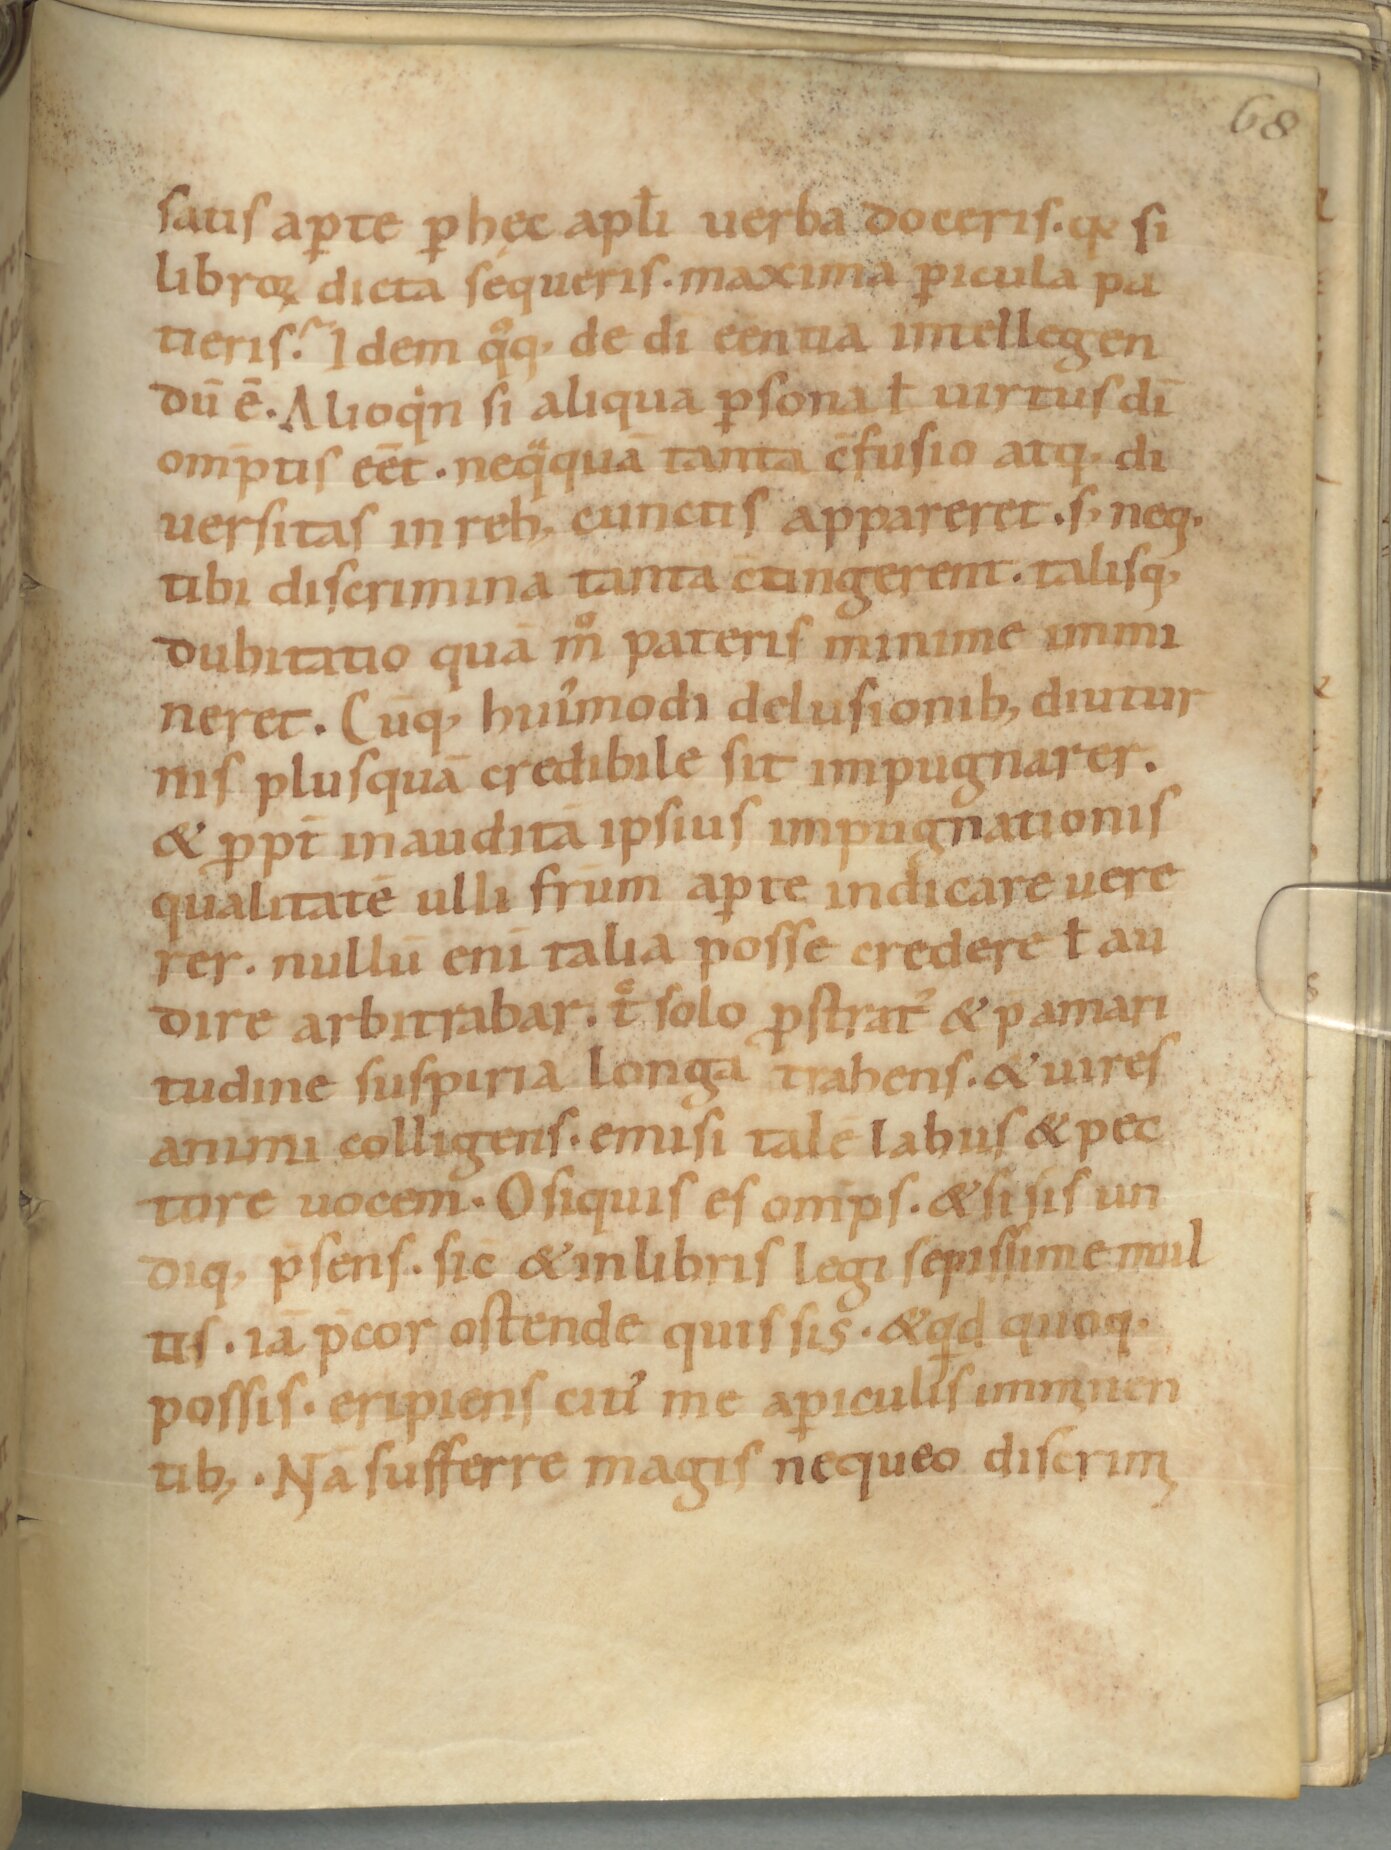 68
satis aꝑte ꝑ hęc apłi uerba doceris. qꝫ si
libroꝝ dicta sequeris. maxima ꝑicula pa
tieris? Idem qͦq; de dī eēntia intellegen
dū ē. Alioqͥn si aliqua ꝑsona ł uirtus dī
om̄ptis eēt. neqͣquā tanta c̄fusio atq; di
uersitas in reb; cunctis appareret. s; neq;
tibi discrimina tanta c̄tingerent. talisq;
dubitatio quā mͦ pateris minime immi
neret. Cūq; hui᾽modi delusionib; diutur
nis plusquā credibile sit impugnarer.
& ꝓpt̄ inauditā ipsius impugnationis
qualitatē ulli fr̄um aꝑte indicare uere
rer. nullū enī talia posse credere ł au
dire arbitrabar. tͦ solo ꝓstrat᾽ & p̄ amari
tudine suspiria longa trahens. & uires
animi colligens. emisi talē labiis & pec
tore uocem. O siquis es om̄ps. & si sis un
diq; p̄sens. sic̄ & in libris legi sepissime mul
tis. iā p̄cor ostende quis sis. & qͥd quoq;
possis. eripiens citi᾽ me a ꝑiculis imminen
tib;. Nā sufferre magis nequeo discrim̨